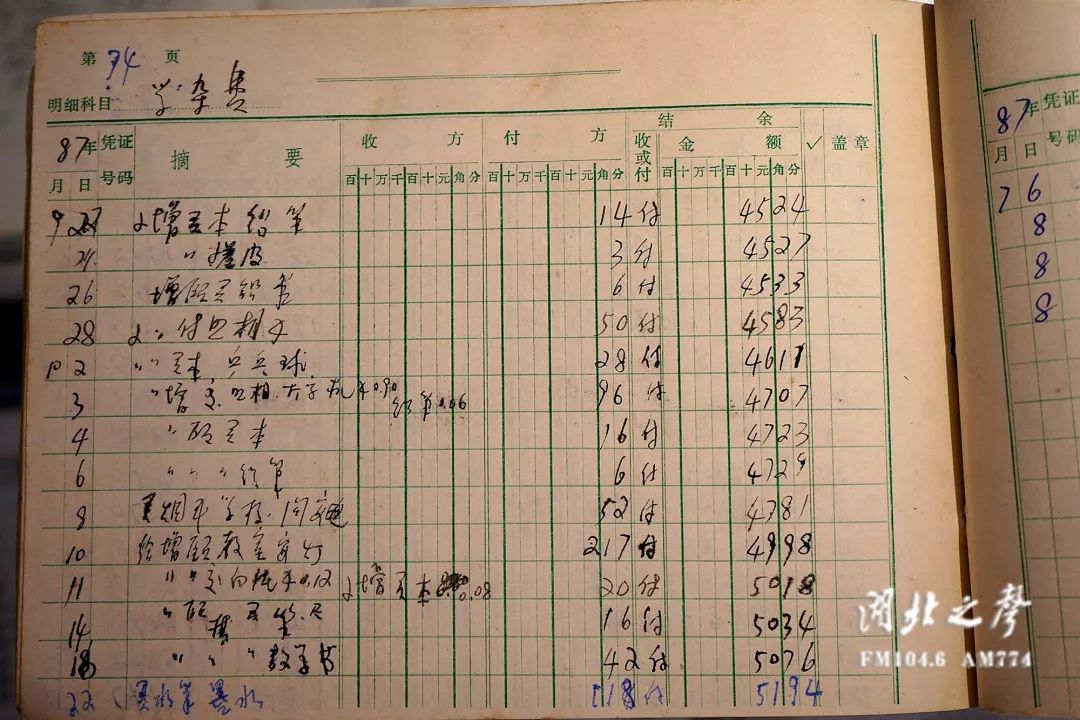 第 34 页
明细科目 学杂费
87年 凭证号码 摘要 收方 付方 结余 ✓ 盖章
月 日 百十万千百十元角分 百十万千百十元角分 收或付 金额 百十万千百十元角分
9 22 增买本 铅笔 14 付 4524
24 〃 橡皮 3 付 4527
26 增 买铅笔 6 付 4533
28 〃 付照相 50 付 4583
10 2 〃 买本, 乒乓球 28 付 4611
3 〃 增 照相. 本0.90 铅笔0.06 96 付 4707
4 〃 买本 16 付 4723
6 〃 〃 〃 铅笔 6 付 4729
8 学校 52 付 4781
10 给增顾教室安灯 217 付 4998
11 〃 〃 0.12 增买本 0.08 20 付 5018
14 〃 买 笔. 尺 16 付 5034
18 〃 〃 〃 数学书 42 付 5076
22 买水笔墨水 118 付 5194
87年 凭证号码
月 日
7 6
8
8
8
湖北之声
FM104.6 AM774